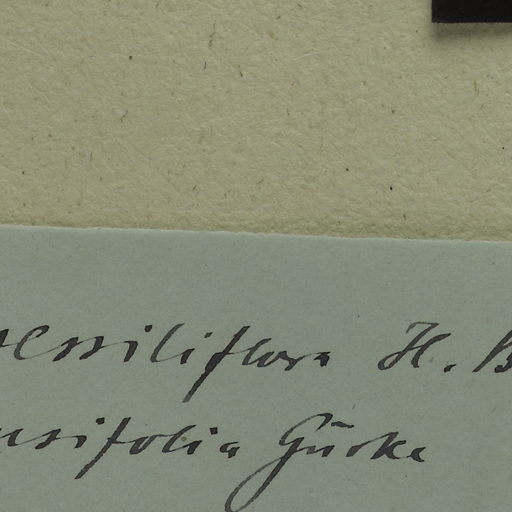 sessiliflora H. B
usifolia Gürke